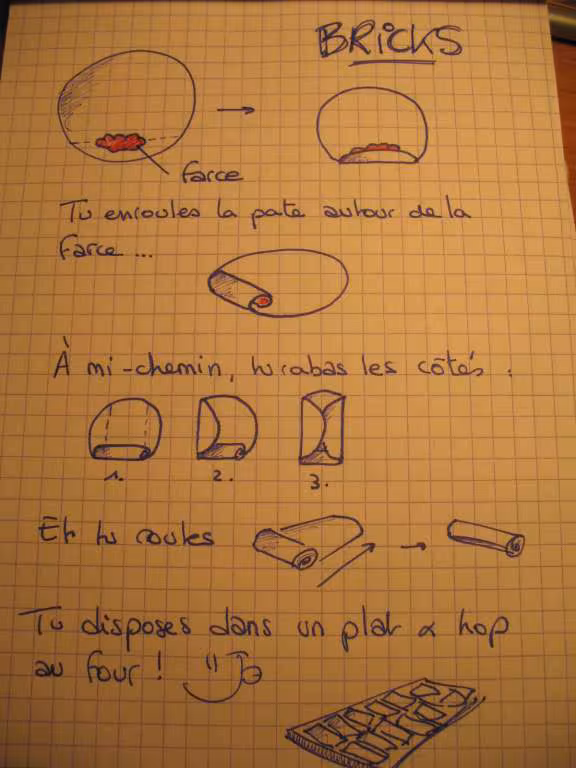 BRICKS
farce
Tu enroules la pate autour de la
farce ...
À mi-chemin, tu rabas les côtés :
1.
2.
3.
Et tu roules
Tu disposes dans un plat & hop
au four !